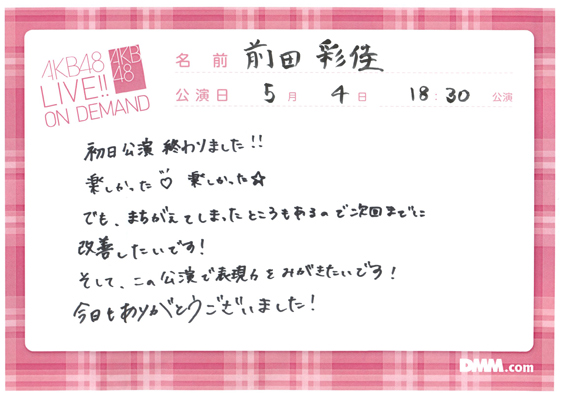 AKB48
LIVE!!
ON DEMAND
AKB
48
名前 前田 彩佳
公演日 5月 4日 18:30 公演
初日公演 終わりました!!
楽しかった♡ 楽しかった☆
でも、まちがえてしまったところもあるので次回までに
改善したいです!
そして、この公演で表現力をみがきたいです!
今日もありがとうございました!
DMM.com